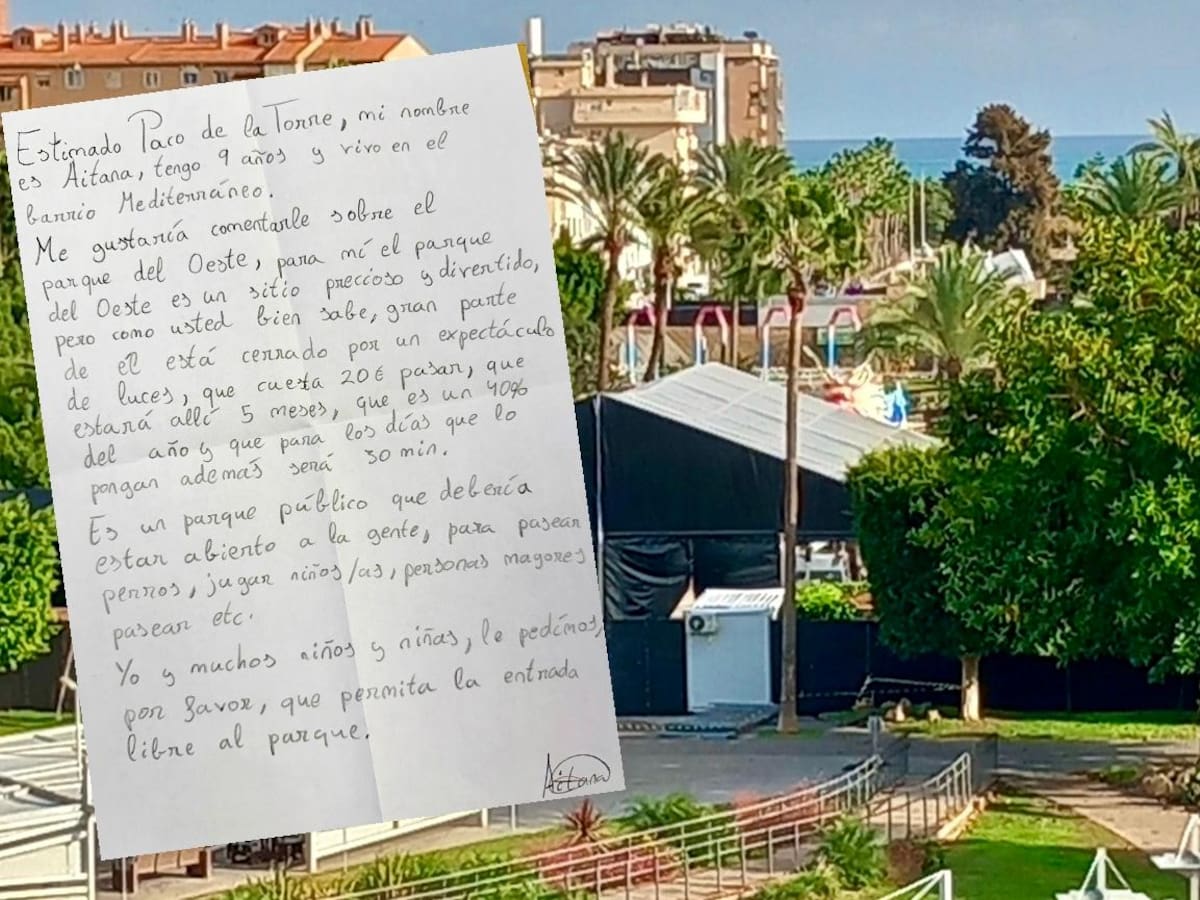 Estimado Paco de la Torre, mi nombre
es Aitana, tengo 9 años y vivo en el
barrio Mediterráneo.
Me gustaría comentarle sobre el
parque del Oeste, para mí el parque
del Oeste es un sitio precioso y divertido,
pero como usted bien sabe, gran parte
de el está cerrado por un expectáculo
de luces, que cuesta 20€ pasar, que
estará allí 5 meses, que es un 40%
del año y que para los días que lo
pongan ademas será 30 min.
Es un parque público que debería
estar abierto a la gente, para pasear
perros, jugar niños/as, personas magores
pasear etc.
Yo y muchos niños y niñas, le pedímos,
por favor, que permita la entrada
libre al parque.
Aitana